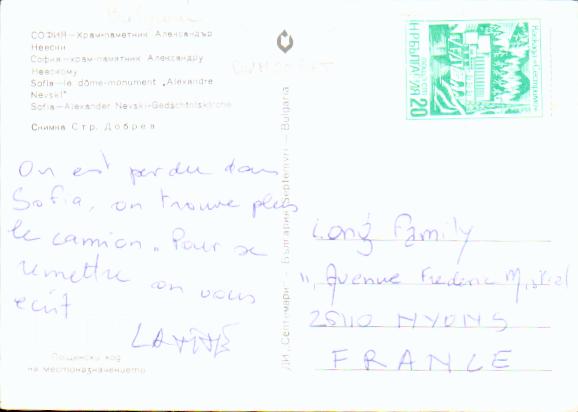 СОФИЯ—Храм-паметник Александър
Невски
София—храм-памятник Александру
Невскому
Sofia—le dôme-monument „Alexandre
Nevski"
Sofia—Alexander Nevski-Gedächtniskirche
Снимка Стр. Добрев
On est perdu dans
Sofia, on trouve plus
le camion. Pour se
remettre on vous
écrit
Пощенски код
на местоназначението
ДИ „Септември" — България Septemvri — Bulgaria
НР БЪЛГАРИЯ
20
Long Family
Avenue Frederic Mistral
26110 NYONS
FRANCE